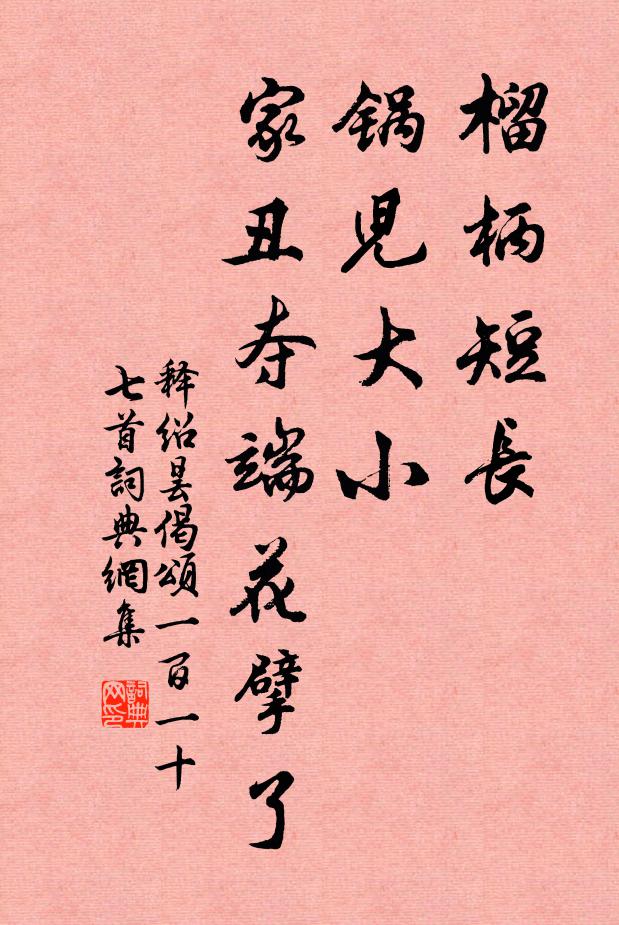 榴柄短長
锅兒大小
家丑夺端花擘了
释绍昙偈頌一百一十
七首詞典網集
詞典
网印